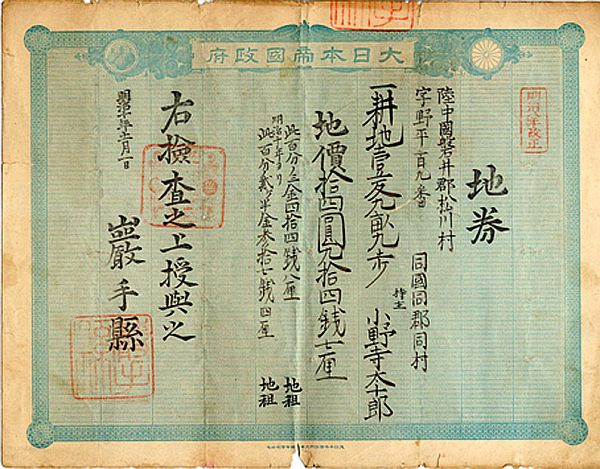 大日本帝國政府
地券
陸中國磐井郡松川村
字野平百九番
同國同郡同村
一耕地壹反九畝九歩
持主 小野寺太十郎
地價拾四圓九拾四銭七厘
此百分ノ三金四拾四銭八厘 地租
明治十年ヨリ
此百分ノ貳ヶ半金参拾七銭四厘 地租
右撿査之上授與之
巖手縣